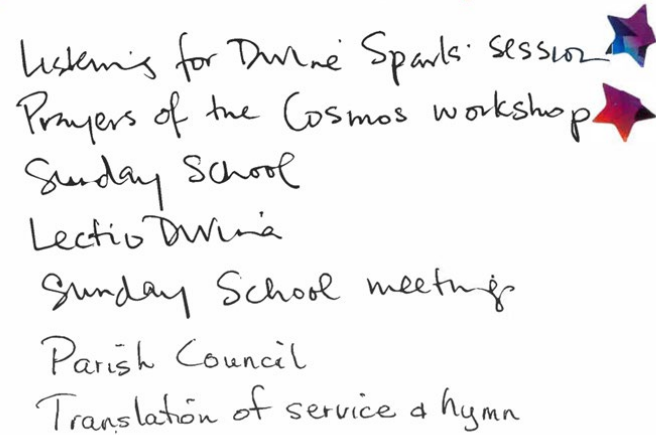 Listening for Divine Sparks session
Prayers of the Cosmos workshop
Sunday School
Lectio Divina
Sunday School meeting
Parish Council
Translation of service & hymn